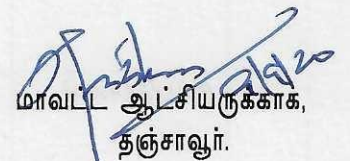 மாவட்ட ஆட்சியருக்காக,
தஞ்சாவூர்.